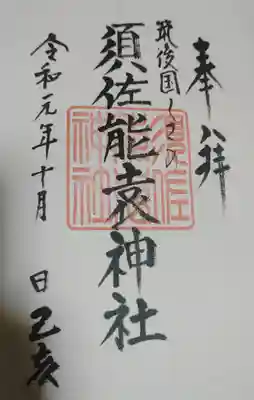 奉拝
筑後国くさの
須佐能袁神社
令和元年十月 日 乙亥